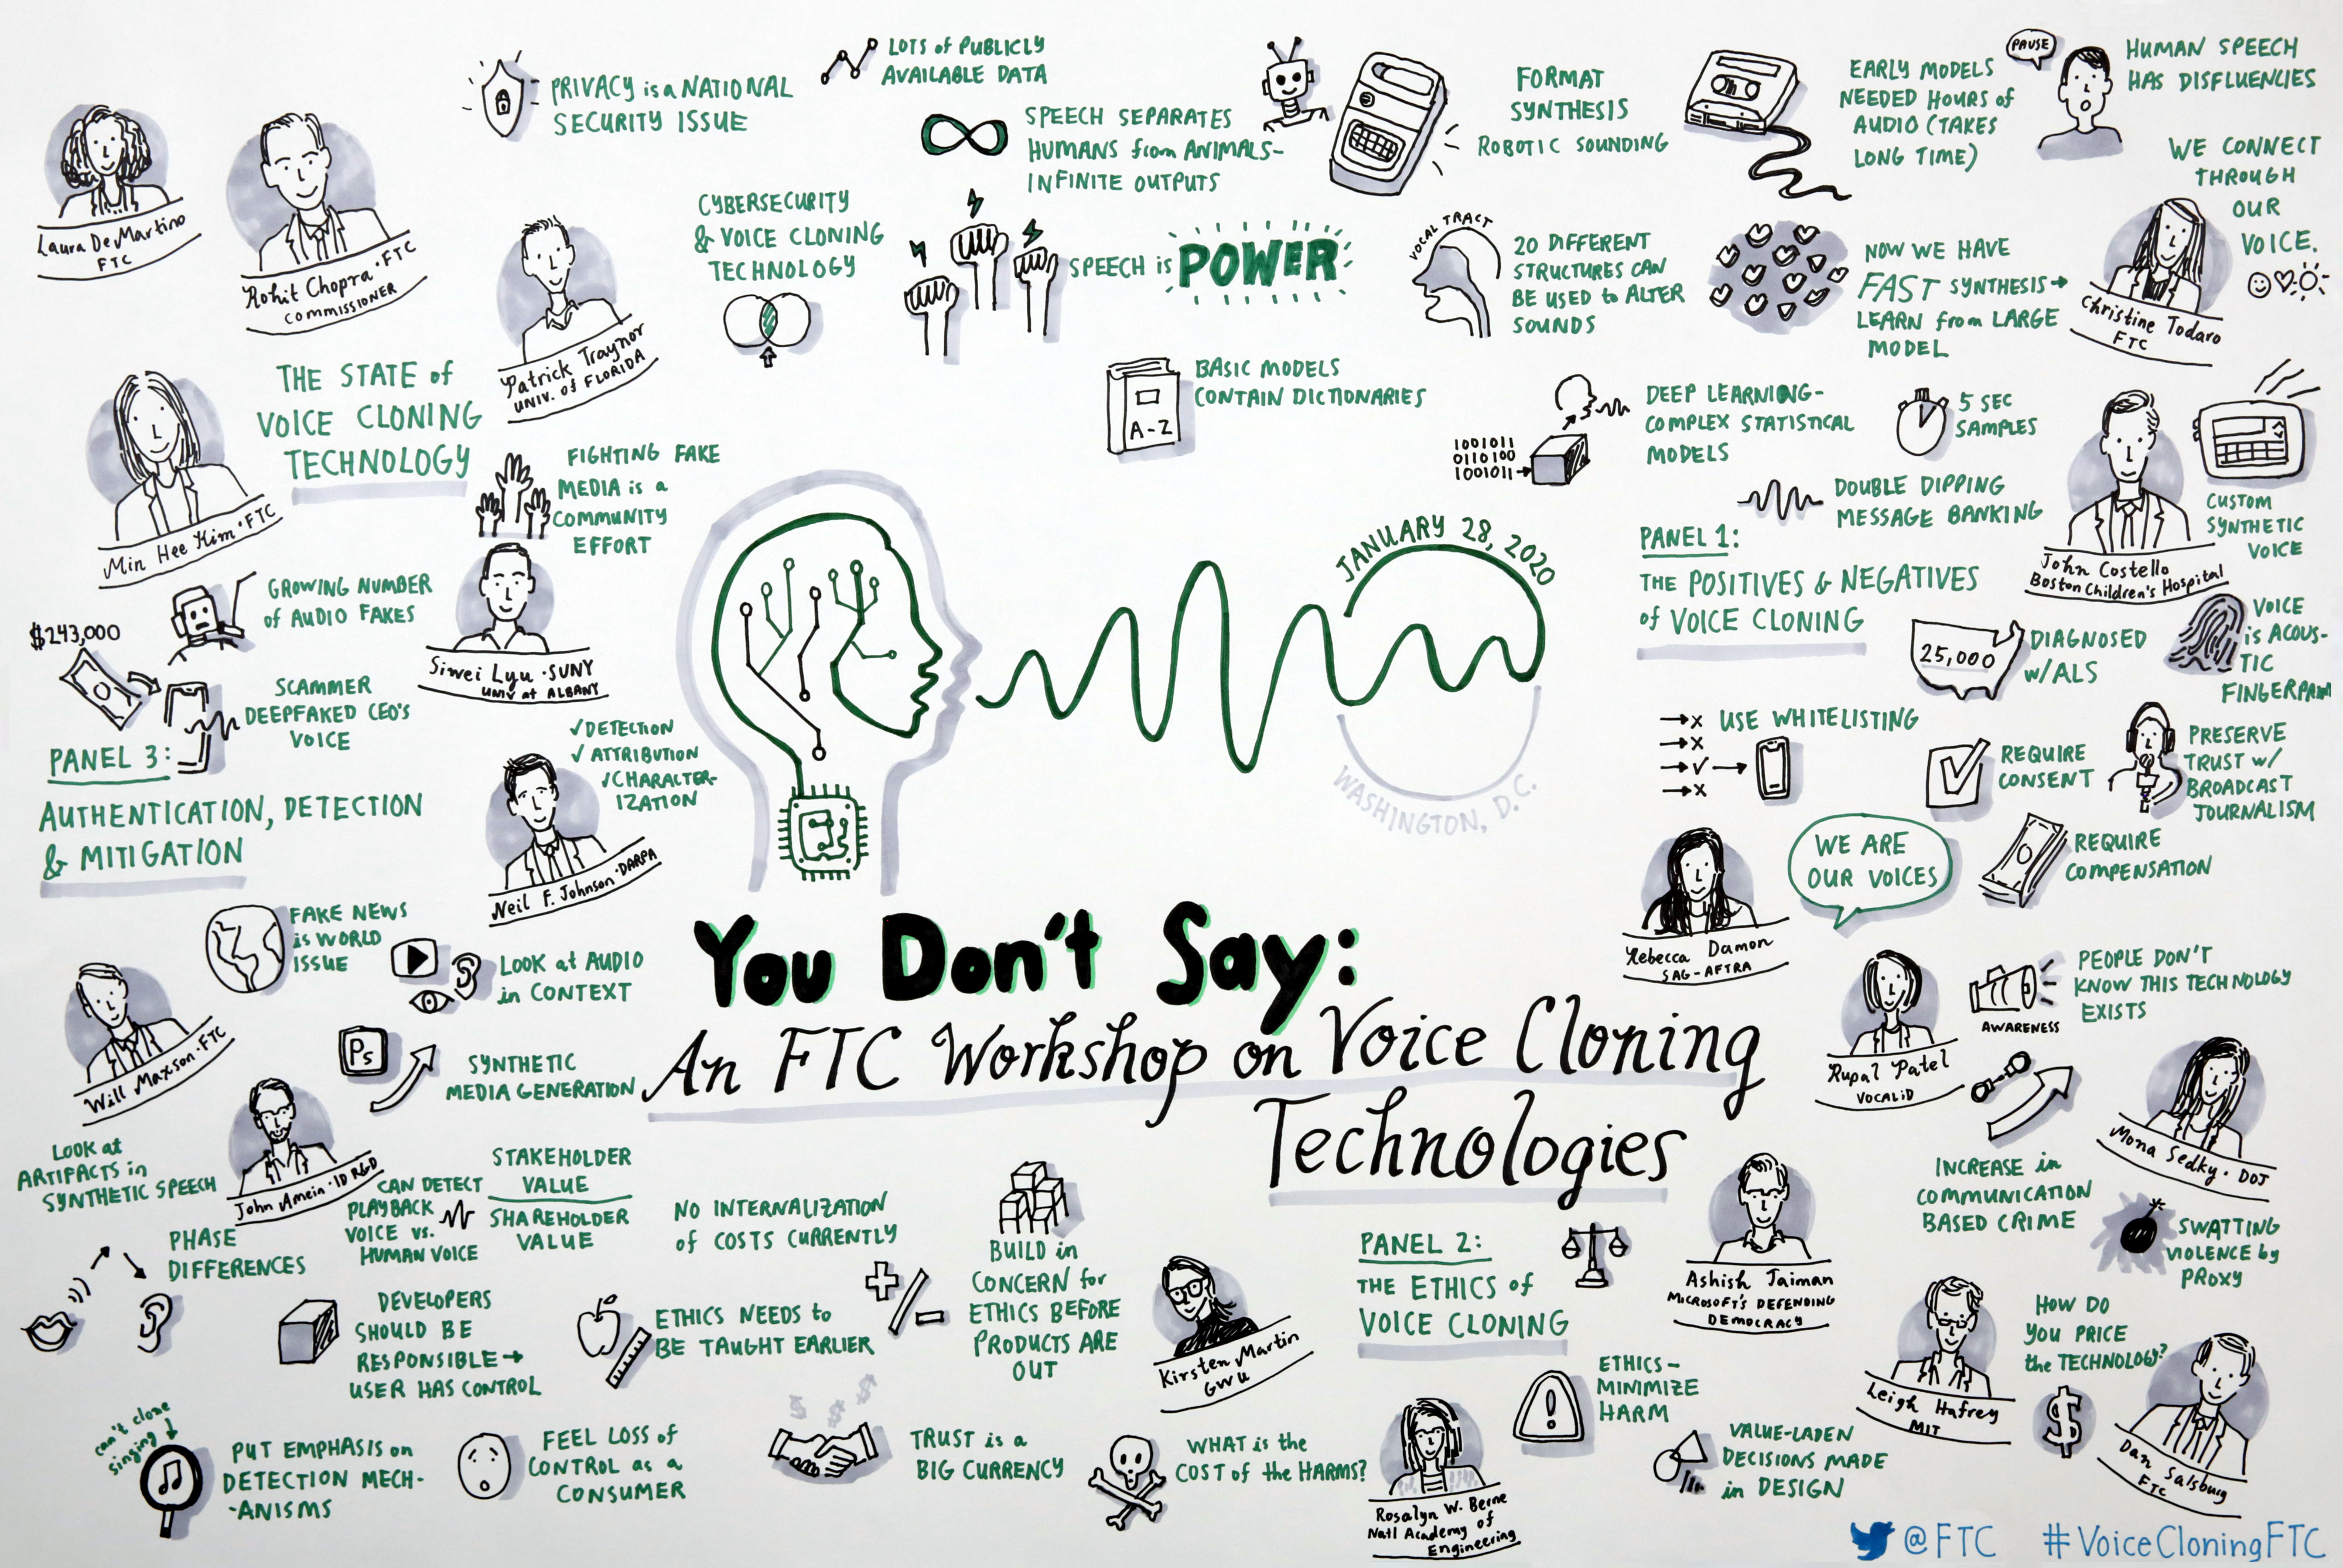 Laura DeMartino
FTC
Rohit Chopra • FTC
COMMISSIONER
PRIVACY is a NATIONAL
SECURITY ISSUE
LOTS of PUBLICLY
AVAILABLE DATA
SPEECH SEPARATES
HUMANS from ANIMALS-
INFINITE OUTPUTS
Patrick Traynor
UNIV. of FLORIDA
CYBERSECURITY
& VOICE CLONING
TECHNOLOGY
SPEECH is POWER
FORMAT
SYNTHESIS
ROBOTIC SOUNDING
EARLY MODELS
NEEDED HOURS of
AUDIO (TAKES
LONG TIME)
PAUSE
HUMAN SPEECH
HAS DISFLUENCIES
WE CONNECT
THROUGH
OUR
VOICE.
VOCAL TRACT
20 DIFFERENT
STRUCTURES CAN
BE USED to ALTER
SOUNDS
NOW WE HAVE
FAST SYNTHESIS→
LEARN from LARGE
MODEL
Christine Todaro
FTC
A-Z
BASIC MODELS
CONTAIN DICTIONARIES
1001011
0110100
1001011
DEEP LEARNING-
COMPLEX STATISTICAL
MODELS
5 SEC
SAMPLES
DOUBLE DIPPING
MESSAGE BANKING
John Costello
Boston Children's Hospital
CUSTOM
SYNTHETIC
VOICE
PANEL 1:
THE POSITIVES & NEGATIVES
of VOICE CLONING
25,000
DIAGNOSED
w/ALS
VOICE
is ACOUS-
TIC
FINGERPRINT
USE WHITELISTING
REQUIRE
CONSENT
PRESERVE
TRUST w/
BROADCAST
JOURNALISM
Rebecca Damon
SAG-AFTRA
WE ARE
OUR VOICES
REQUIRE
COMPENSATION
Rupal Patel
VOCALiD
AWARENESS
PEOPLE DON'T
KNOW THIS TECHNOLOGY
EXISTS
Mona Sedky • DOJ
INCREASE in
COMMUNICATION
BASED CRIME
SWATTING
VIOLENCE by
PROXY
Min Hee Kim • FTC
THE STATE of
VOICE CLONING
TECHNOLOGY
FIGHTING FAKE
MEDIA is a
COMMUNITY
EFFORT
Siwei Lyu • SUNY
UNIV at ALBANY
GROWING NUMBER
of AUDIO FAKES
$243,000
SCAMMER
DEEPFAKED CEO'S
VOICE
PANEL 3:
AUTHENTICATION, DETECTION
& MITIGATION
✓DETECTION
✓ATTRIBUTION
✓CHARACTER-
IZATION
Neil F. Johnson • DARPA
JANUARY 28, 2020
WASHINGTON, D.C.
You Don't Say:
An FTC Workshop on Voice Cloning
Technologies
Will Maxson • FTC
FAKE NEWS
is WORLD
ISSUE
LOOK at AUDIO
in CONTEXT
Ps
SYNTHETIC
MEDIA GENERATION
John Amein • ID R&D
LOOK at
ARTIFACTS in
SYNTHETIC SPEECH
CAN DETECT
PLAYBACK
VOICE vs.
HUMAN VOICE
PHASE
DIFFERENCES
can't clone
singing
PUT EMPHASIS on
DETECTION MECH-
-ANISMS
STAKEHOLDER
VALUE
SHAREHOLDER
VALUE
NO INTERNALIZATION
of COSTS CURRENTLY
BUILD in
CONCERN for
ETHICS BEFORE
PRODUCTS ARE
OUT
DEVELOPERS
SHOULD BE
RESPONSIBLE→
USER HAS CONTROL
ETHICS NEEDS to
BE TAUGHT EARLIER
FEEL LOSS of
CONTROL as a
CONSUMER
$ $ $
TRUST is a
BIG CURRENCY
WHAT is the
COST of the HARMS?
Kirsten Martin
GWU
PANEL 2:
THE ETHICS of
VOICE CLONING
Ashish Jaiman
MICROSOFT'S DEFENDING
DEMOCRACY
Rosalyn W. Berne
Natl Academy of
Engineering
!
ETHICS-
MINIMIZE
HARM
VALUE-LADEN
DECISIONS MADE
in DESIGN
Leigh Hafrey
MIT
HOW DO
YOU PRICE
the TECHNOLOGY?
$
Dan Salsburg
FTC
@FTC #VoiceCloningFTC